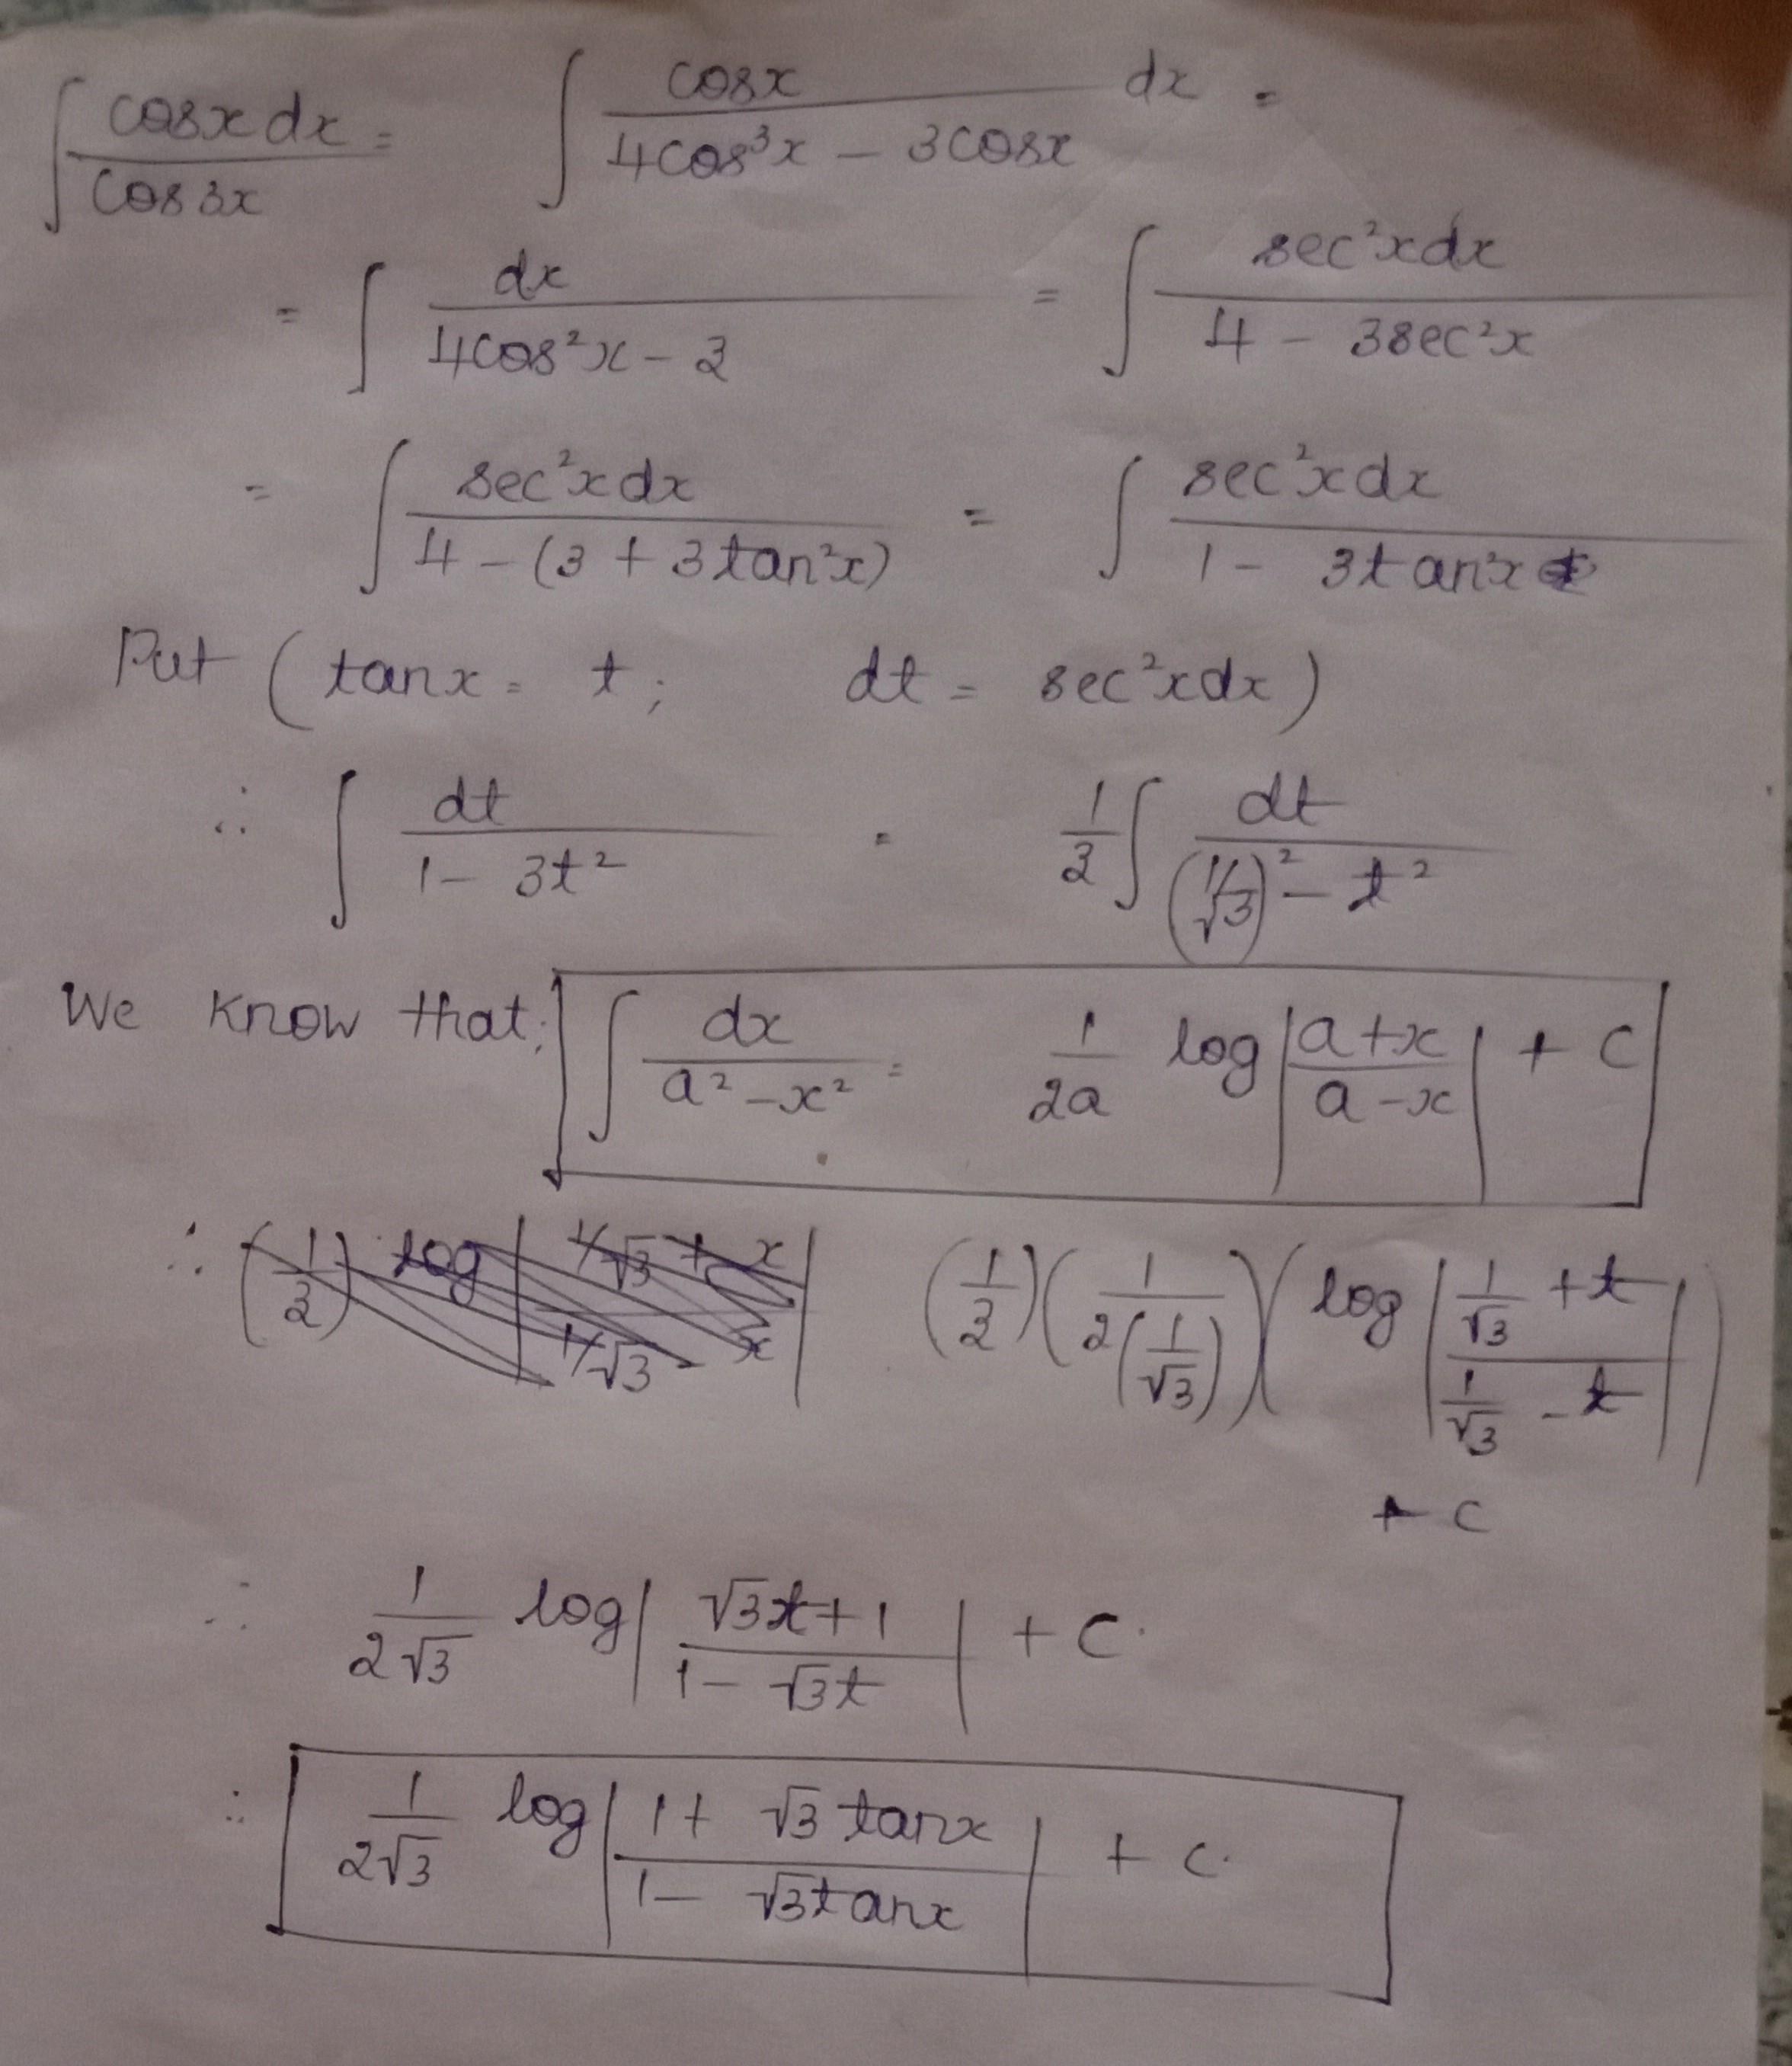 ∫ cosx dx / cos3x = ∫ cosx / (4cos³x − 3cosx) dx =
= ∫ dx / (4cos²x − 3) = ∫ sec²x dx / (4 − 3sec²x)
= ∫ sec²x dx / (4 − (3 + 3tan²x)) = ∫ sec²x dx / (1 − 3tan²x)
Put (tanx = t; dt = sec²x dx)
∴ ∫ dt / (1 − 3t²) = 1/3 ∫ dt / ((1/√3)² − t²)
We know that; ∫ dx / (a² − x²) = 1/2a log |(a + x) / (a − x)| + C
∴ (1/3) log |(1/√3 + x) / (1/√3 − x)| (1/3) (1 / 2(1/√3)) (log |(1/√3 + t) / (1/√3 − t)|)
+ C
∴ 1/2√3 log |(√3t + 1) / (1 − √3t)| + C.
∴ 1/2√3 log |(1 + √3 tanx) / (1 − √3 tanx)| + C.